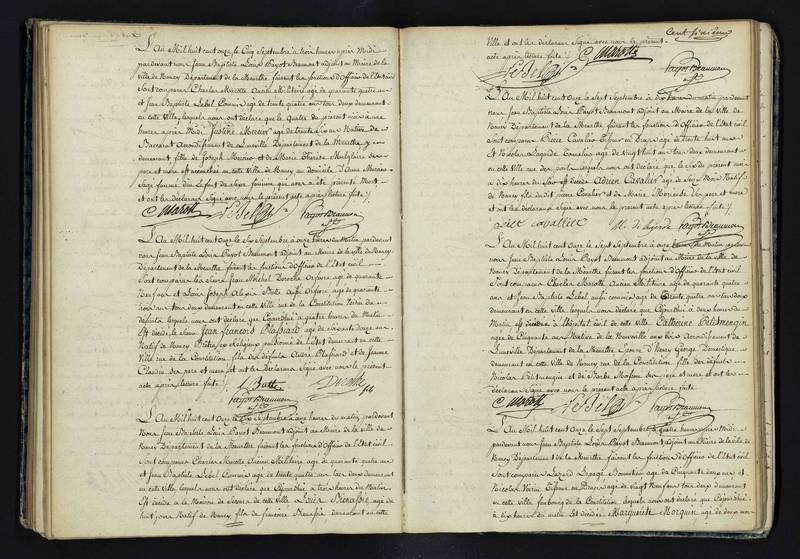 L'An Mil huit cent onze le Cinq Septembre à trois heures après Midi
pardevant nous Jean Baptiste Louis Payot Beaumont adjoint au Maire de la
Ville de Nancy Département de la Meurthe faisant les fonction d'Officier de l'état civil
Sont comparus Charles Marotte Ancien Militaire agé de quarante quatre ans
et Jean Baptiste Lebel Commis agé de trente quatre ans tous deux demeurant
en cette Ville, lesquels nous ont déclaré que le quatre du présent mois à une
heure après Midi Justine Mercier agée de trente
Baccarat Arrondissement de Lunéville Département de la Meurthe y
demeurant fille de Joseph Mercier et de Marie Thérèse
père et mère est accouchée en cette Ville
Sage femme d'un Enfant du Sexe féminin, qui nous a été présenté Mort
et ont les déclarans Signé avec nous le présent acte après lecture faite /.
C Marotte Lebel Payot Beaumont
L'An Mil huit cent Onze le Six Septembre à onze heures du Matin pardevant
nous Jean Baptiste Louis Payot Beaumont adjoint au Maire de la ville de Nancy
Département de la Meurthe faisant les fonction d'Officier de l'état civil
Sont comparus les Sieurs Michel Orfèvre agé de quarante
Neuf ans et Louis Joseph Alexis Butte aussi Orfèvre agé de quarante
ans tous deux demeurant en cette Ville rue de la Constitution
défunt lesquels nous ont déclaré que Cejourd'hui à quatre heures du Matin
Est décédé le Sieur Jean François Plassiard agé de Soixante douze ans
Natif de Nancy Prêtre Ex Religieux pensionné de l'état demeurant en cette
Ville rue de la Constitution fils des défunts Plassiard et de Jeanne
Claudin Ses père et mère et ont les déclarans Signé avec nous le présent
acte après lecture faite /.
Butte
Payot Beaumont
L'An Mil huit cent Onze le Six Septembre à onze heures du matin, pardevant
Nous Jean Baptiste Louis Payot Beaumont adjoint au Maire de la ville de
Nancy Département de la Meurthe faisant les fonctions d'Officier de l'état civil
Sont comparus Charles Marotte Ancien Militaire agé de quarante quatre ans
et Jean Baptiste Lebel Commis agé de trente quatre ans tous deux demeurant
en cette Ville, lesquels nous ont déclaré que Cejourd'hui à trois heures du Matin
Est décédé à la Maison de Secours de cette Ville Louis Bienassis agé de
huit jours Natif de Nancy fils de françoise Bienassis, demeurant en cette
Cent Sixième
Ville et ont les déclarans Signé avec nous le présent
acte après lecture faite /.
C Marotte
Lebel Payot Beaumont
L'An Mil huit cent Onze le Sept Septembre à dix heures du matin pardevant
nous Jean Baptiste Louis Payot Beaumont adjoint au Maire de la Ville de
Nancy Département de la Meurthe faisant les fonction d'Officier de l'état civil
Sont comparus Pierre Cavalier agé de trente huit ans
et Nicolas Lagarde agé de Vingt huit ans tous deux demeurant
en cette Ville lesquels nous ont déclaré que le Six du présent mois
à dix heures du Soir est décédé Adrien Cavalier agé de Sept Mois Natif
de Nancy fils du dit pierre Cavalier et de Marie Ses père et mere
et ont les déclarans Signé avec nous le présent acte après lecture faite /.
cavallier Payot Beaumont
L'An Mil huit cent Onze le Sept Septembre à onze heures du Matin pardevant
nous Jean Baptiste Louis Payot Beaumont adjoint au Maire de la Ville de Nancy
Département de la Meurthe faisant les fonction d'Officier de l'état civil
Sont comparus Charles Marotte Ancien Militaire agé de quarante quatre
ans et Jean Baptiste Lebel aussi commis agé de trente quatre ans tous deux
demeurant en cette Ville, lesquels nous ont déclaré que Cejourd'hui à deux heures du
Matin, est décédée à l'hôpital civil de cette Ville Catherine Petitmengin
agée de Cinquante ans Native de la Neuveville aux bois Arrondissement de
Lunéville Département de la Meurthe Epouse d'Henry George Domestique
demeurant en cette Ville de Nancy rue de la Constitution fille des défunts
Nicolas Petitmengin et de Barbe Ses père et mere et ont les
déclarans Signé avec nous le présent acte après lecture faite
C Marotte Lebel Payot Beaumont
L'An Mil huit cent Onze le Sept Septembre à quatre heures après Midi
pardevant nous Jean Baptiste Louis Payot Beaumont adjoint au Maire de la Ville de
Nancy Département de la Meurthe faisant les fonction d'Officier de l'état civil
Sont comparus Lepage agé de Cinquante deux ans et
Nicolas Voirin agé de Vingt Neuf ans tous deux demeurant
en cette Ville faubourg de la Constitution, lesquels nous ont déclaré que Cejourd'hui
à dix heures du matin Est décédée Marguerite Morquin agée de deux ans